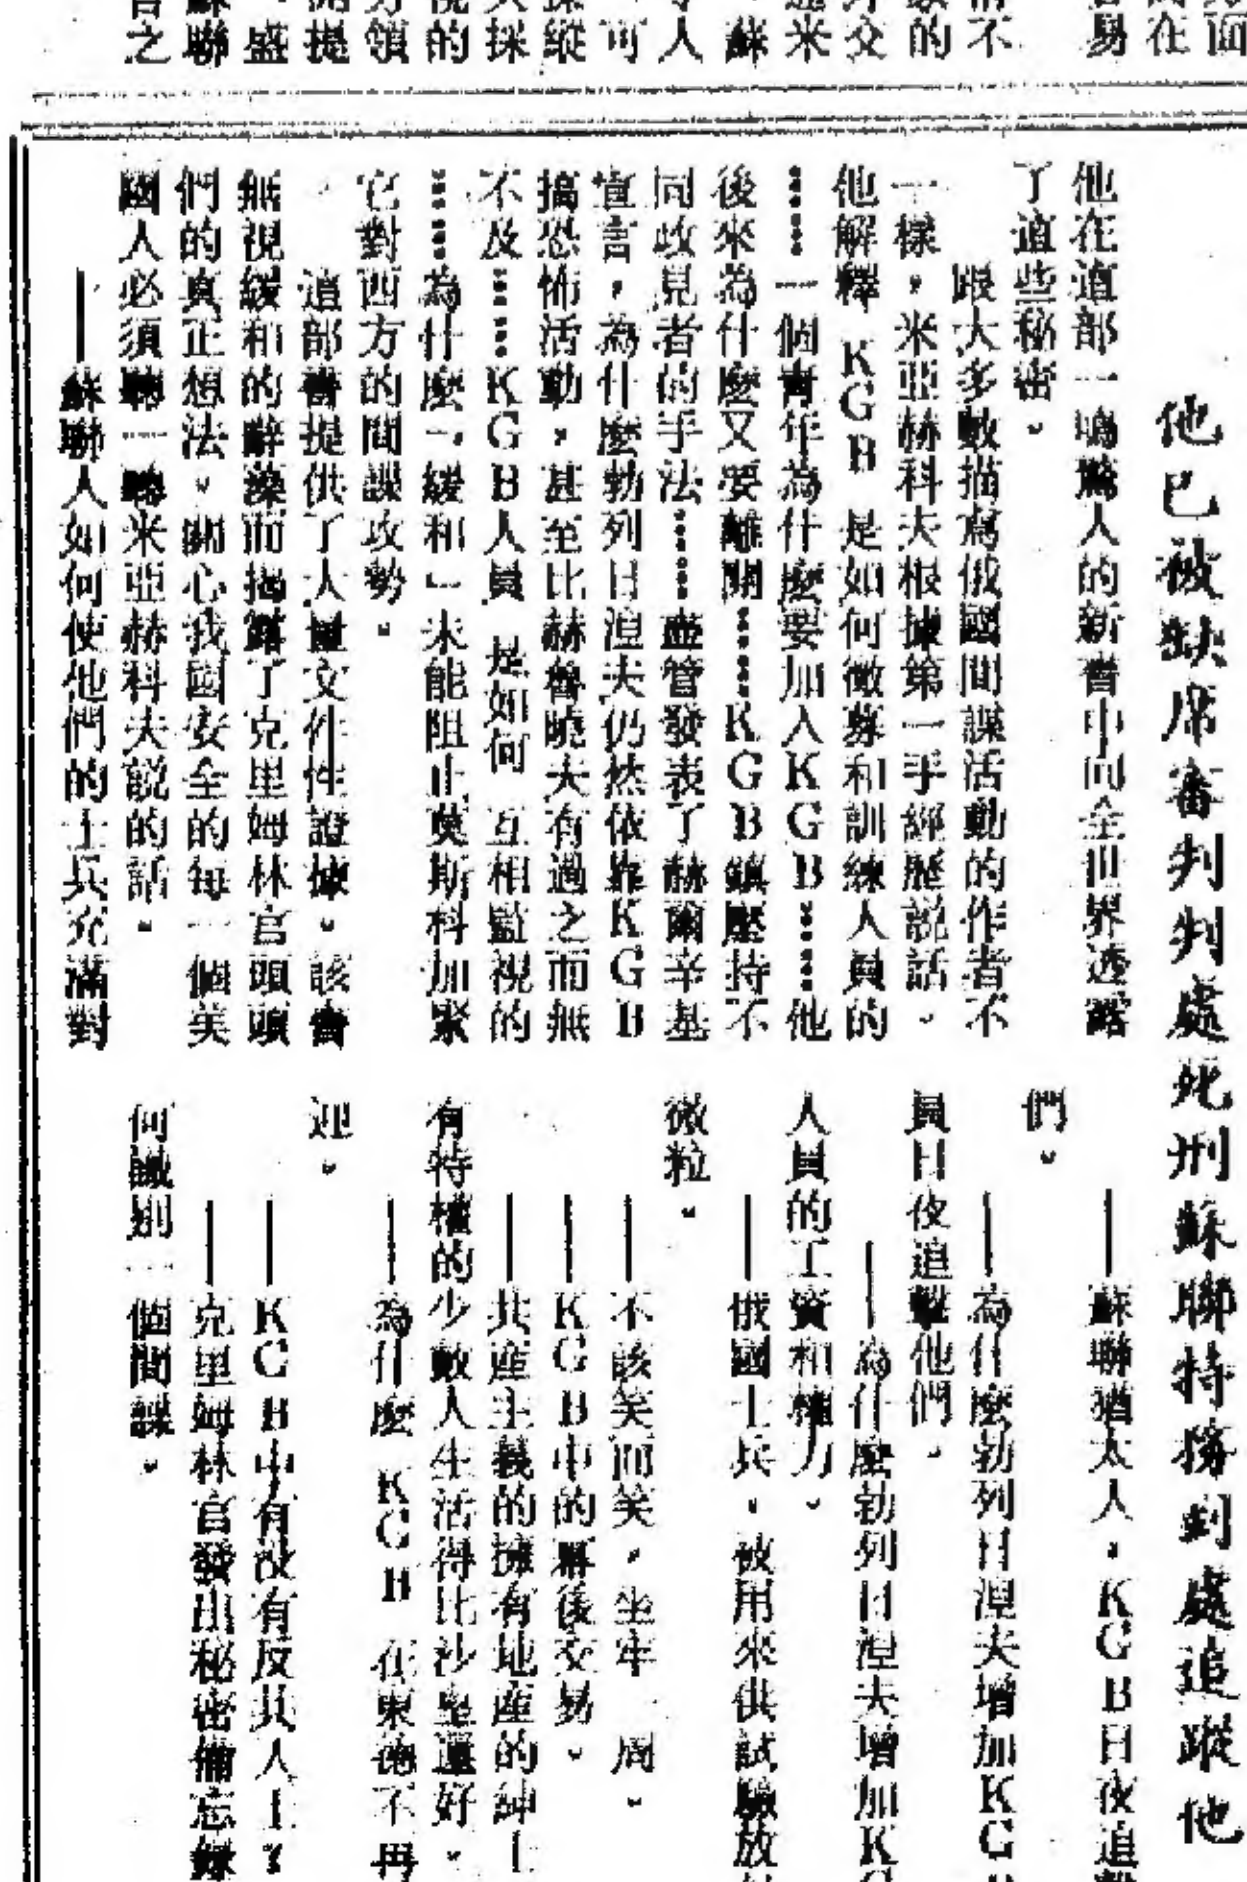 他已被缺席審判判處死刑蘇聯特務到處追蹤他
他在這部一鳴驚人的新書中向全世界透露
了這些秘密。
跟大多數描寫俄國間諜活動的作者不
一樣，米亞赫科夫根據第一手經歷說話。
他解釋 KGB 是如何徵募和訓練人員的
……一個青年為什麼要加入KGB……他
後來為什麼又要離開……KGB鎮壓持不
同政見者的手法……盡管發表了赫爾辛基
宣言，為什麼勃列日涅夫仍然依靠KGB
搞恐怖活動，甚至比赫魯曉夫有過之而無
不及……KGB人員 是如何 互相監視的
……為什麼「緩和」未能阻止莫斯科加緊
它對西方的間諜攻勢。
這部書提供了大量文件性證據。該書
無視緩和的辭藻而揭露了克里姆林宮頭頭
們的真正想法。關心我國安全的每一個美
國人必須聽一聽米亞赫科夫說的話。
——蘇聯人如何使他們的士兵充滿對
——蘇聯猶太人，KGB日夜追擊
們。
——為什麼勃列日涅夫增加KG
員日夜追擊他們。
——為什麼勃列日涅夫增加K
人員的工資和權力。
——俄國士兵，被用來供試驗放
微粒。
——不該笑而笑，坐牢 周。
——KGB中的幕後交易。
——共產主義的擁有地產的紳士
有特權的少數人生活得比沙皇還好。
——為什麼 KGB 在東德不再
迎。
——KGB中有沒有反共人士？
——克里姆林宮發出秘密備忘錄
何識別一個間諜。